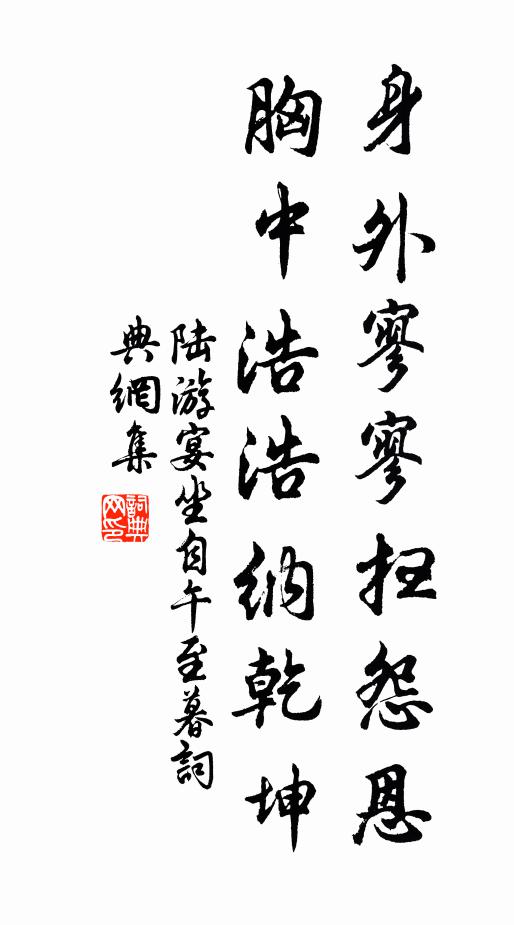 身外寥寥扭怨恩
胸中浩浩納乾坤
陸游宴坐自午至暮詞
典網集
詞典網印